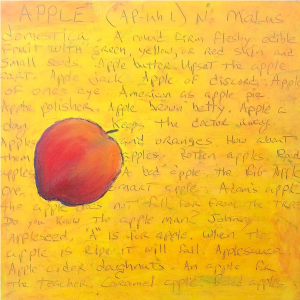 APPLE (AP-uh l) N. Malus
domestica. A round firm fleshy edible
fruit with green, yellow, or red skin and
small seeds. Apple butter. Upset the apple
cart. Apple jack. Apple of discord. Apple
of ones eye. American as apple pie.
Apple polisher. Apple brown betty. Apple a
day keeps the doctor away.
Apples and oranges. How about
them apples. Rotten apples. Road
A bad apple. the Big Apple
one apple. Adam's apple
the apple does not fall far from the tree
Do you know the apple man? Johnny
Appleseed. "A" is for apple. When the
apple is ripe it will fall. Applesauce.
Apple cider doughnuts. An apple for
the teacher. Caramel apple. Road apples.